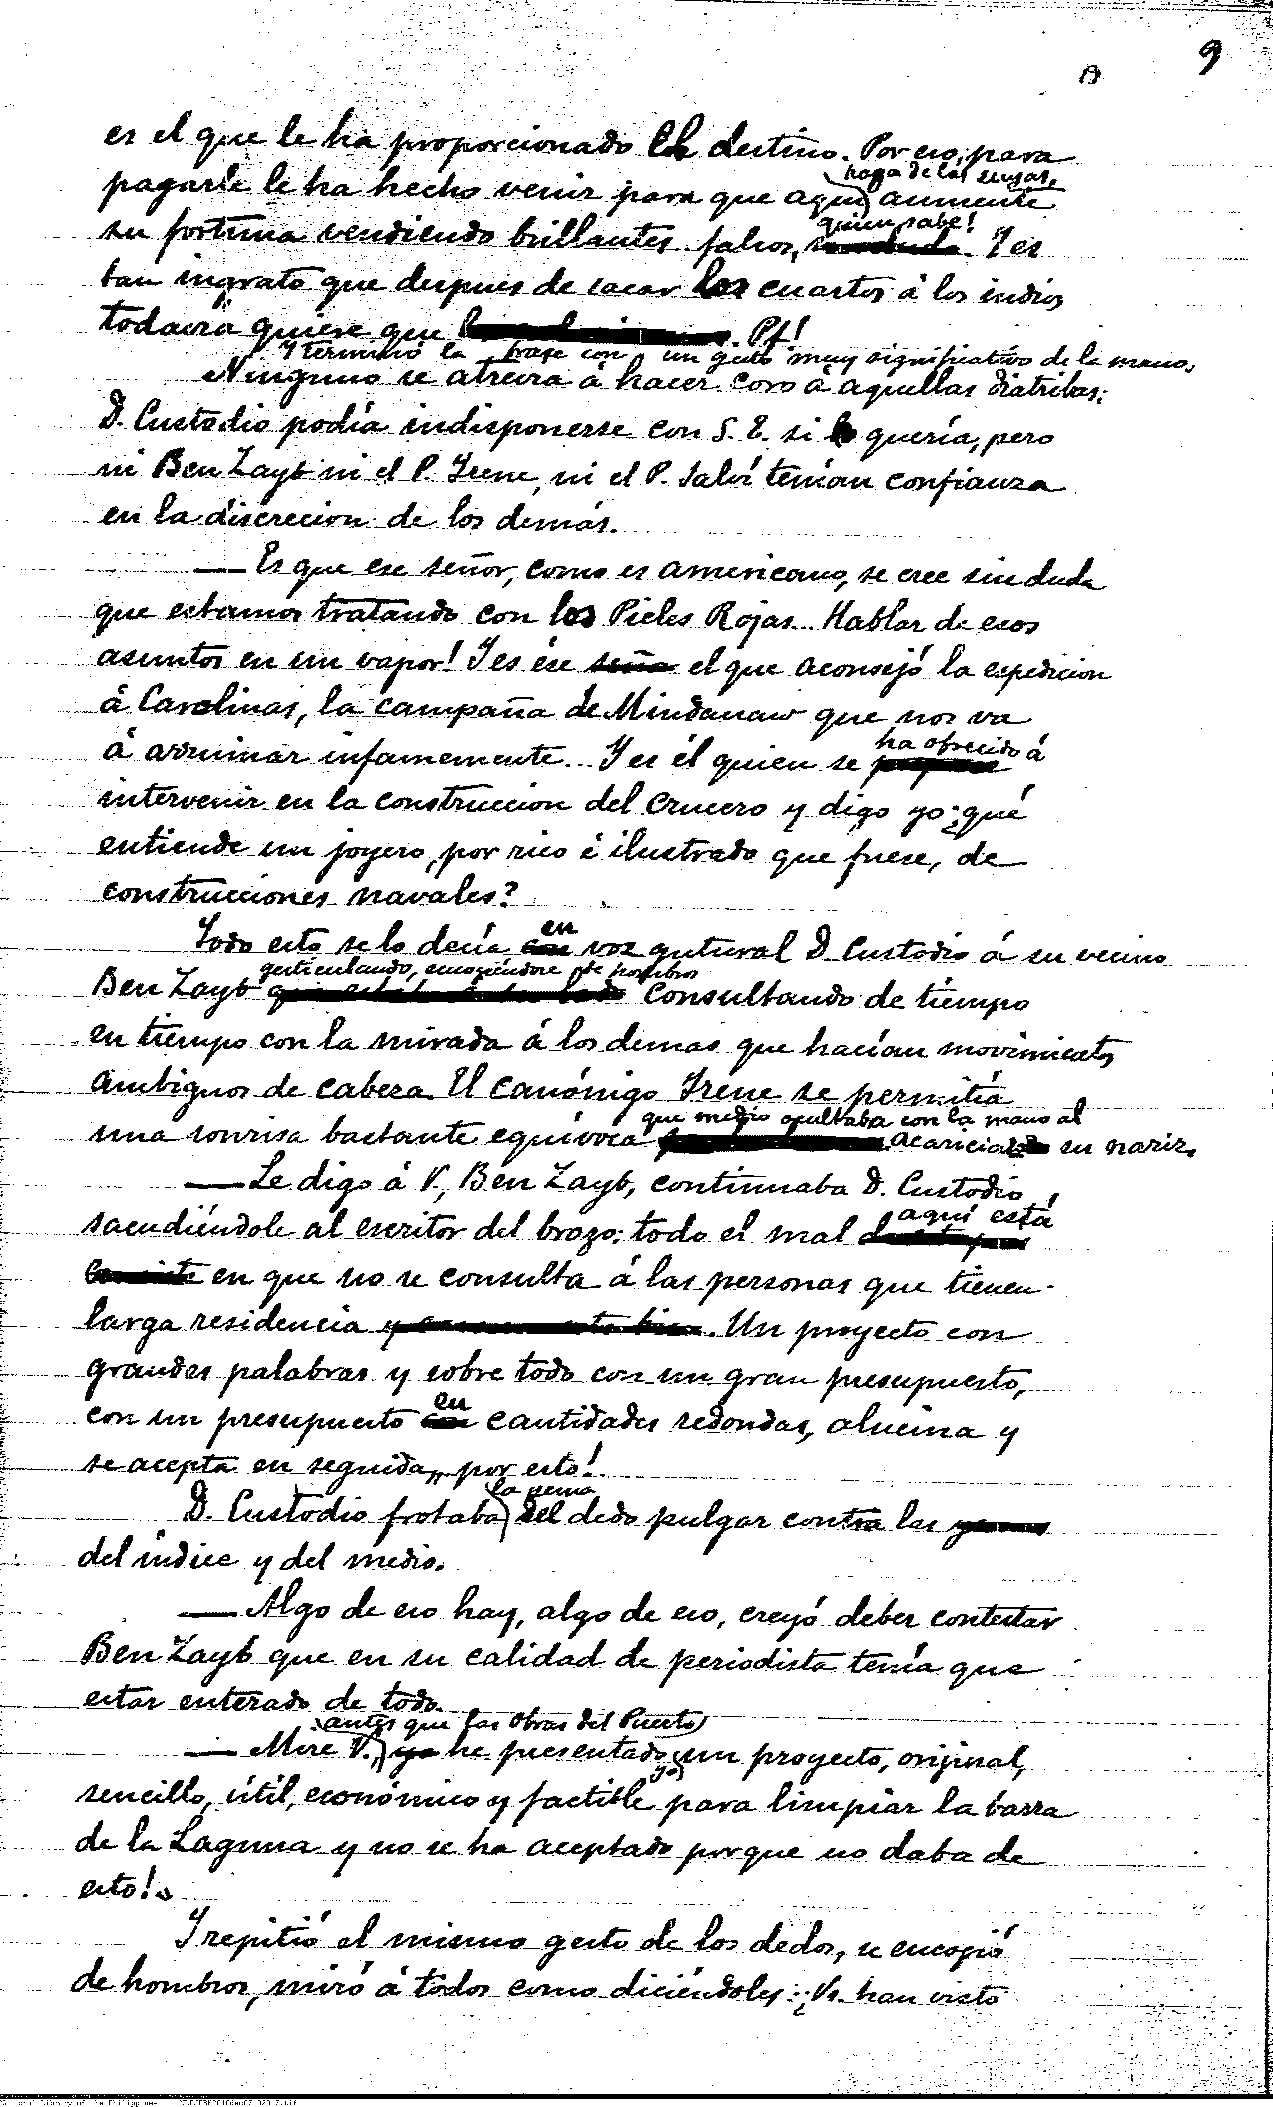 9
es el que le ha proporcionado el destino. Por eso, para
haga de las suyas,
pagarle le ha hecho venir para que aquí aumente
quien sabe!
su fortuna vendiendo brillantes falsos, sin duda. Y es
tan ingrato que despues de sacar los cuartos á los indios
todavía quiere que . Pf!
Y terminó la frase con un gesto muy significativo de la mano.
Ninguno se atrevía á hacer coro á aquellas diatribas:
D. Custodio podía indisponerse con S. E. si quería, pero
ni Ben Zayb ni el P. Irene, ni el P. Salví tenían confianza
en la discrecion de los demás.
— Es que ese señor, como es americano, se cree sin duda
que estamos tratando con los Pieles Rojas... Hablar de esos
asuntos en un vapor! Y es ése seño el que aconsejó la espedicion
á Carolinas, la campaña de Mindanaw que nos va
ha ofrecido
á arruinar infamemente... Y es él quien se á
intervenir en la construccion del crucero y digo yo ¿qué
entiende un joyero, por rico é ilustrado que fuese, de
construcciones navales?
en
Todo esto se lo decía con voz gutural D. Custodio á su vecino
gesticulando, encogiéndose de hombros
Ben Zayb que estaba á su lado consultando de tiempo
en tiempo con la mirada á los demas que hacían movimientos
ambiguos de cabeza. El canónigo Irene se permitía
que medio ocultaba con la mano al
una sonrisa bastante equívoca acariciar su nariz.
— Le digo á V., Ben Zayb, continuaba D. Custodio
aquí está
sacudiéndole al escritor del brazo: todo el mal
consiste en que no se consulta á las personas que tienen
larga residencia . Un proyecto con
grandes palabras y sobre todo con un gran presupuesto,
en
con un presupuesto con cantidades redondas, alucina y
se acepta en seguida,, por esto!
la yema
D. Custodio frotaba del dedo pulgar contra las yemas
del índice y del medio.
— Algo de eso hay, algo de eso, creyó deber contestar
Ben Zayb que en su calidad de periodista tenía que
estar enterado de todo.
antes que las Obras del Puerto
— Mire V., yo he presentado un proyecto, original,
yo
sencillo, útil, económico y factible para limpiar la barra
de la Laguna y no se ha aceptado porque no daba de
esto!
Y repitió el mismo gesto de los dedos, se encogió
de hombros, miró á todos como diciéndoles: ¿Vs. han visto